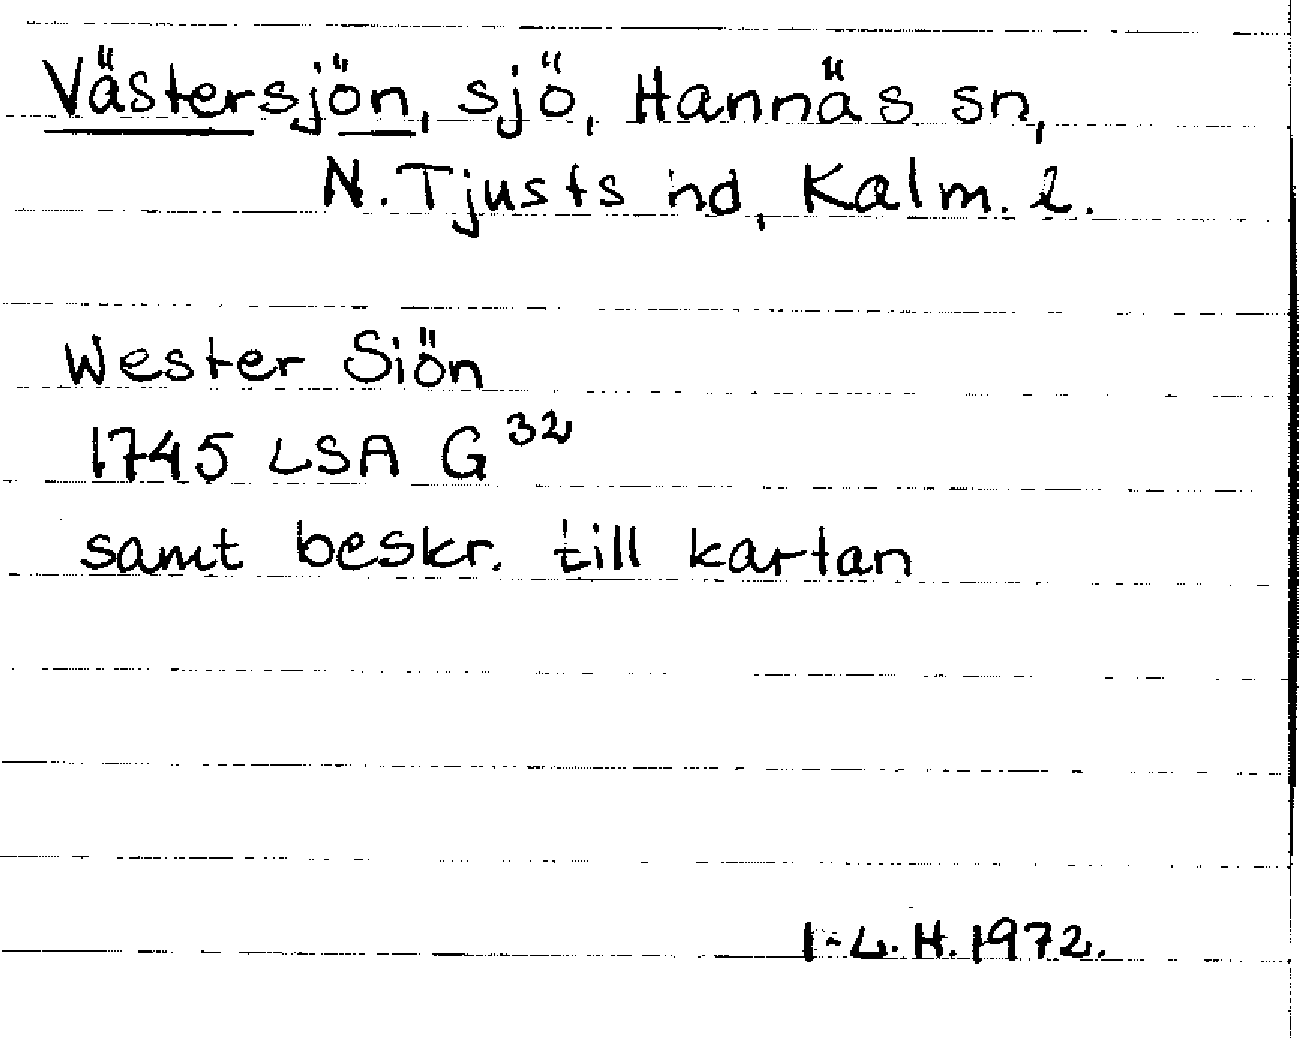 Västersjön, sjö, Hannäs sn,
N. Tjusts hd, Kalm. l.
Wester Siön
1745 LSA G 32
samt beskr. till kartan
I-L. H. 1972.